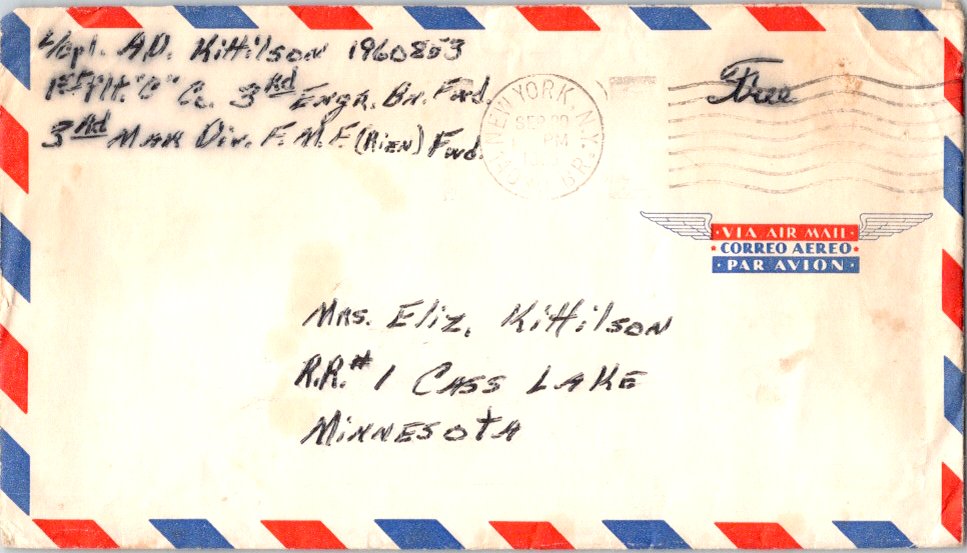 L/Cpl. A.D. Kittilson 1960853
1st Plt. "C" Co. 3rd Engr. Bn. Fwd.
3rd Mar Div. F.M.F. (Rien) Fwd.
NEW YORK, N.Y.
SEP 30
PM
"Free
VIA AIR MAIL
CORREO AEREO
PAR AVION
Mrs. Eliz. Kittilson
R.R.# 1 Cass Lake
Minnesota